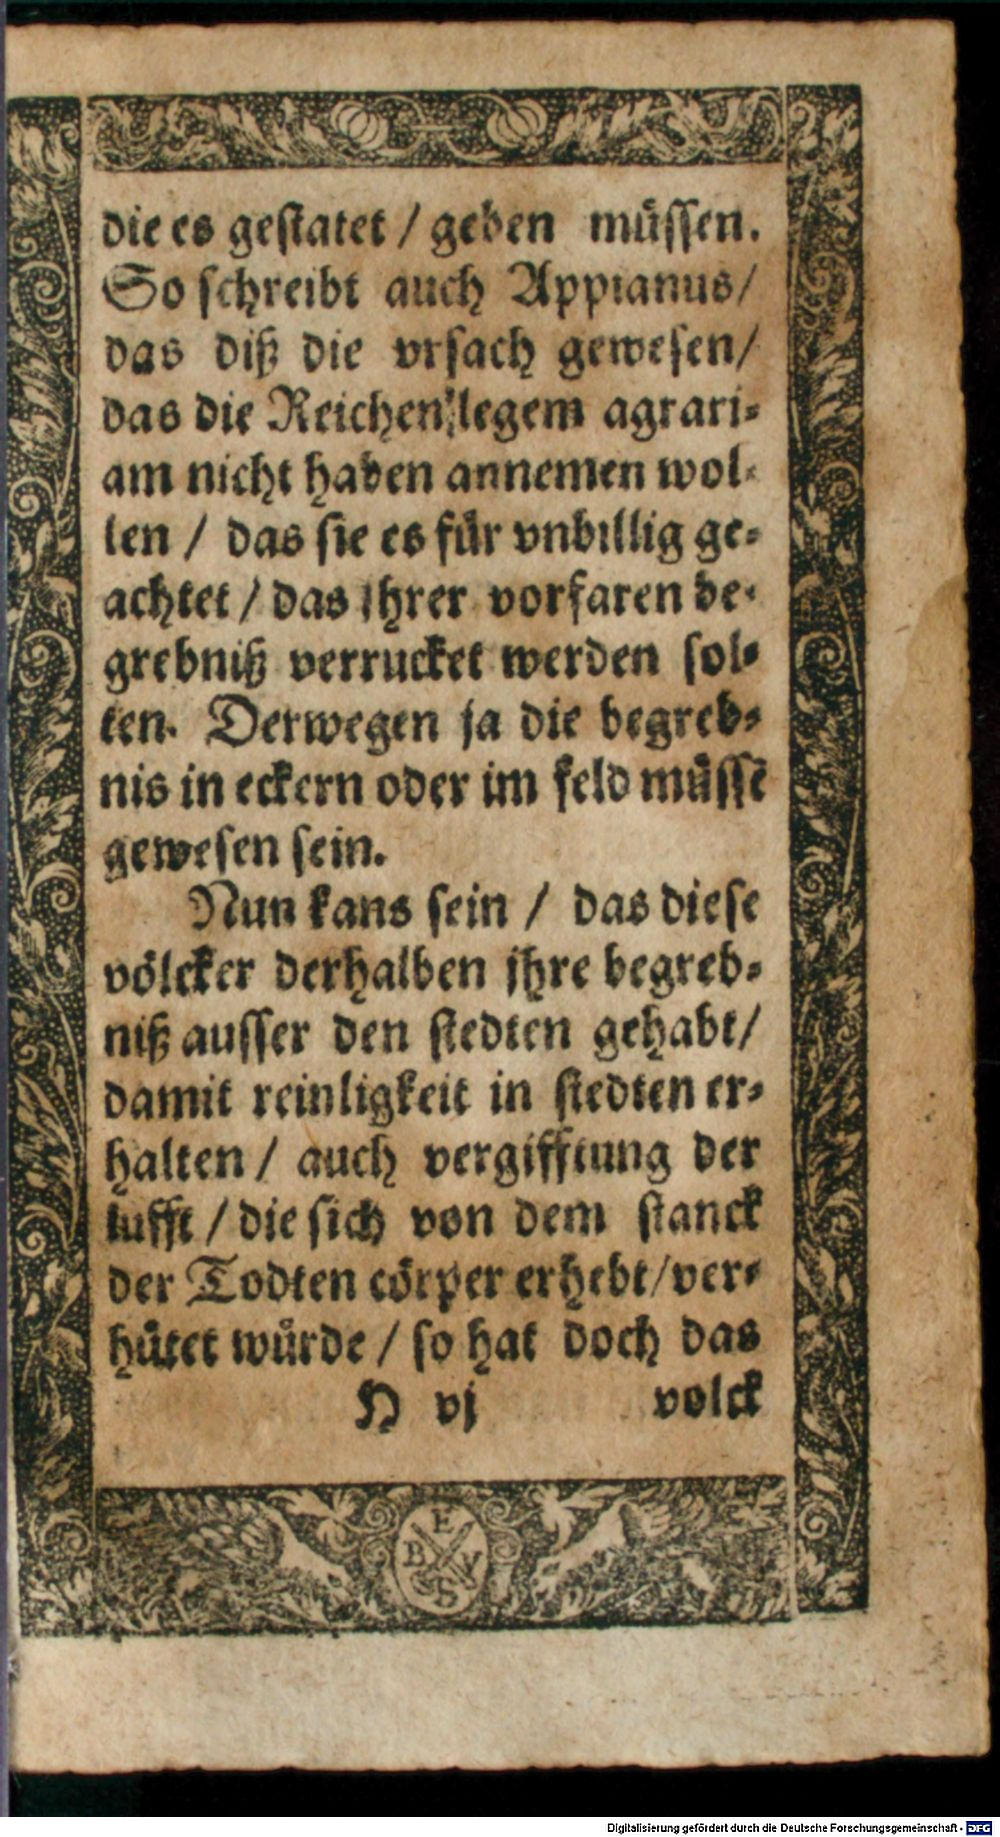 die es gestatet / geben müssen.
So schreibt auch Appianus/
das diß die vrsach gewesen/
das die Reichen legem agrari-
am nicht haben annemen wol-
len / das sie es für vnbillig ge-
achtet / das jhrer vorfaren be-
grebniß verrucket werden sol-
ten. Derwegen ja die begreb-
nis in eckern oder im feld müssē
gewesen sein.
Nun kans sein / das diese
völcker derhalben jhre begreb-
niß ausser den stedten gehabt/
damit reinligkeit in stedten er-
halten / auch vergifftung der
lufft / die sich von dem stanck
der Todten cörper erhebt/ver-
hütet würde / so hat doch das
H vj volck
E
B V
S
Digitalisierung gefördert durch die Deutsche Forschungsgemeinschaft - DFG